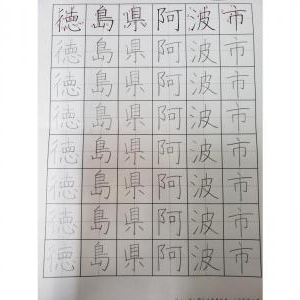 徳島県阿波市
徳島県阿波市
徳島県阿波市
徳島県阿波市
徳島県阿波市
徳島県阿波市
徳島県阿波市
徳島県阿波市